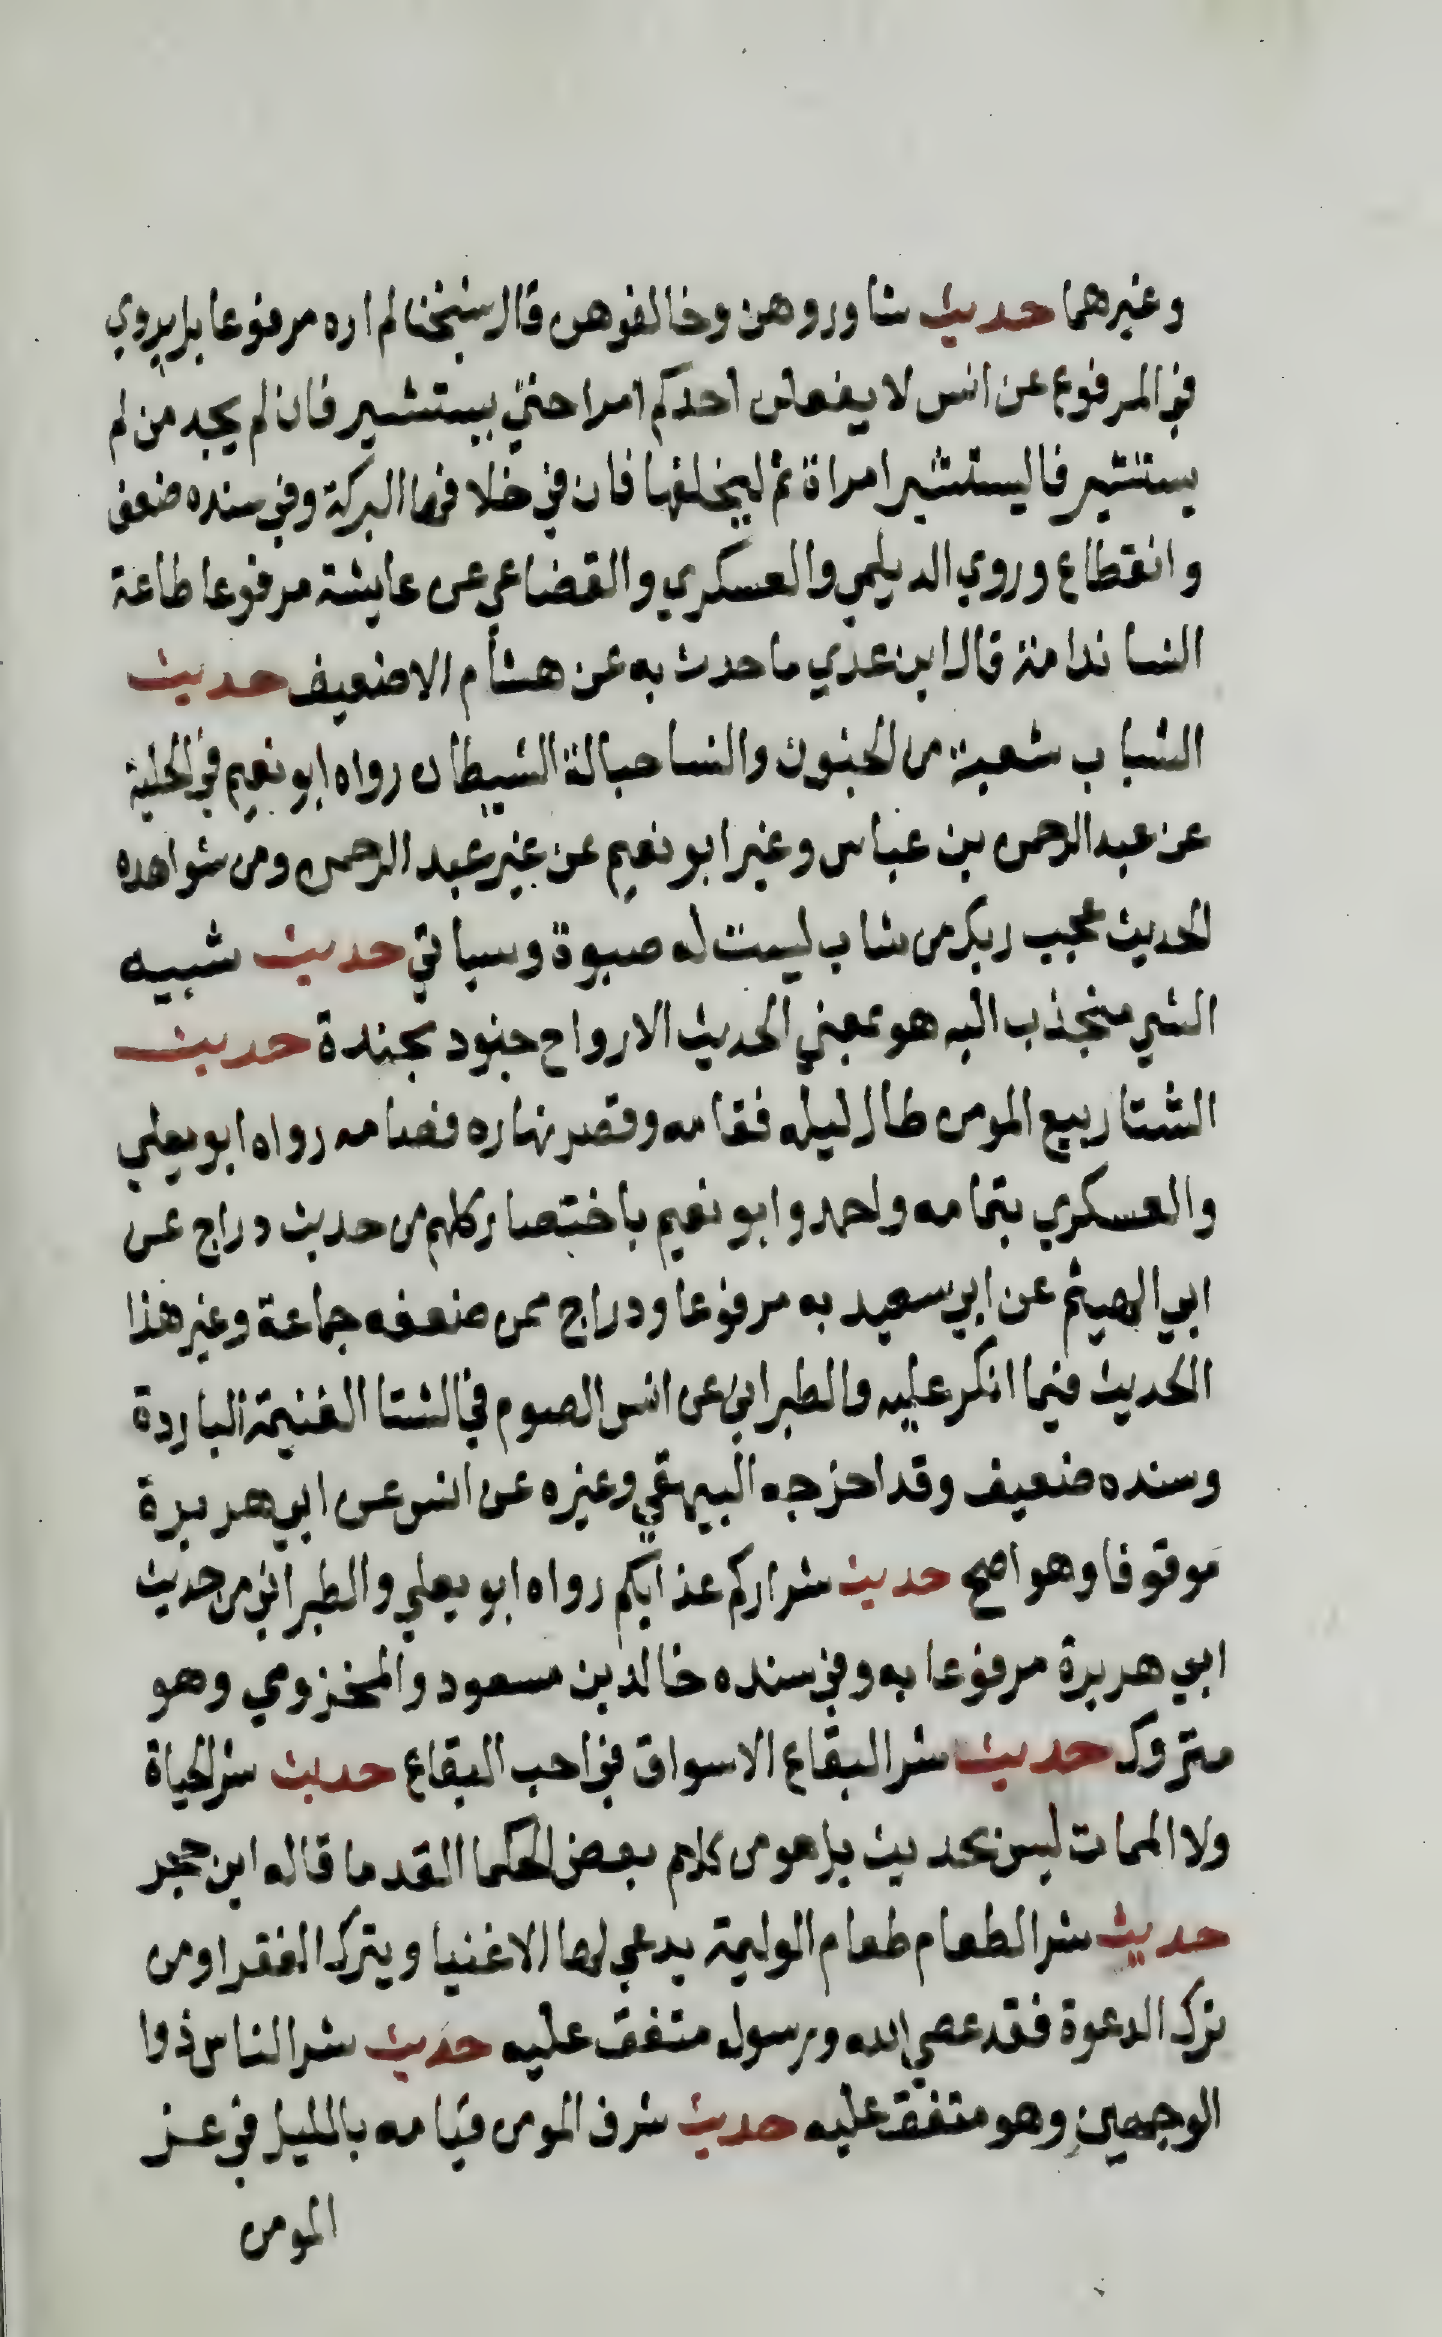 وغيرهما حديث شاوروهن وخالفوهن قال شيخنا لم اره مرفوعا بل يروي
في المرفوع عن انس لا يفعلن احدكم امرا حتي يستشير فان لم يجد من لم
يستشير فاليستشير امراة ثم ليخلفها فان في خلافها البركة وفي سنده ضعف
وانقطاع وروي الديلمي والعسكري والقضاعي عن عايشة مرفوعا طاعة
النسا ندامة قال ابن عدي ما حدث به عن هشام الا ضعيف حديث
الشباب شعبة من الجنون والنسا حبالة الشيطان رواه ابو نعيم في الحلية
عن عبد الرحمن بن عباس وغير ابو نعيم عن غير عبد الرحمن ومن شواهده
الحديث عجب ربك من شاب ليست له صبوة وسياتي حديث شبيه
الشي منجذب اليه هو بمعني الحديث الارواح جنود مجندة حديث
الشتا ربيع المومن طال ليله فقامه وقصر نهاره فصامه رواه ابو يعلي
والعسكري بتمامه واحمد وابو نعيم باختصار كلهم من حديث دراج عن
ابي الهيثم عن ابي سعيد به مرفوعا ودراج ممن ضعفه جماعة وغير هذا
الحديث فيما انكر عليه والطبراني عن انس الصوم في الشتا الغنيمة الباردة
وسنده ضعيف وقد اخرجه البيهقي وغيره عن انس عن ابي هريرة
موقوفا وهو اصح حديث شراركم عذابكم رواه ابو يعلي والطبراني من حديث
ابي هريرة مرفوعا به وفي سنده خالد بن مسعود والمخزومي وهو
متروك حديث شر البقاع الاسواق في احب البقاع حديث شر الحياة
ولا الممات ليس بحديث بل هو من كلام بعض الحكما القدما قاله ابن حجر
حديث شر الطعام طعام الوليمة يدعي لها الاغنيا ويترك الفقرا ومن
ترك الدعوة فقد عصي الله ورسول متفق عليه حديث شر الناس ذوا
الوجهين وهو متفق عليه حديث شرف المومن قيامه بالليل في عز
المومن